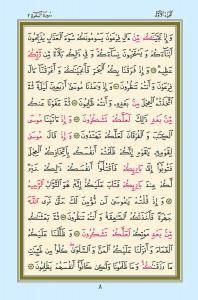 الجزء الأول سورة البقرة ٢
وَإِذْ نَجَّيْنَٰكُم مِّنْ ءَالِ فِرْعَوْنَ يَسُومُونَكُمْ سُوٓءَ ٱلْعَذَابِ يُذَبِّحُونَ
أَبْنَآءَكُمْ وَيَسْتَحْيُونَ نِسَآءَكُمْ وَفِى ذَٰلِكُم بَلَآءٌ مِّن رَّبِّكُمْ
عَظِيمٌ وَإِذْ فَرَقْنَا بِكُمُ ٱلْبَحْرَ فَأَنجَيْنَٰكُمْ وَأَغْرَقْنَآ ءَالَ
فِرْعَوْنَ وَأَنتُمْ تَنظُرُونَ وَإِذْ وَٰعَدْنَا مُوسَىٰٓ أَرْبَعِينَ لَيْلَةً
ثُمَّ ٱتَّخَذْتُمُ ٱلْعِجْلَ مِنۢ بَعْدِهِۦ وَأَنتُمْ ظَٰلِمُونَ ثُمَّ عَفَوْنَا عَنكُم
مِّنۢ بَعْدِ ذَٰلِكَ لَعَلَّكُمْ تَشْكُرُونَ وَإِذْ ءَاتَيْنَا مُوسَى
ٱلْكِتَٰبَ وَٱلْفُرْقَانَ لَعَلَّكُمْ تَهْتَدُونَ وَإِذْ قَالَ مُوسَىٰ
لِقَوْمِهِۦ يَٰقَوْمِ إِنَّكُمْ ظَلَمْتُمْ أَنفُسَكُم بِٱتِّخَاذِكُمُ ٱلْعِجْلَ
فَتُوبُوٓا۟ إِلَىٰ بَارِئِكُمْ فَٱقْتُلُوٓا۟ أَنفُسَكُمْ ذَٰلِكُمْ خَيْرٌ
لَّكُمْ عِندَ بَارِئِكُمْ فَتَابَ عَلَيْكُمْ إِنَّهُۥ هُوَ ٱلتَّوَّابُ ٱلرَّحِيمُ
وَإِذْ قُلْتُمْ يَٰمُوسَىٰ لَن نُّؤْمِنَ لَكَ حَتَّىٰ نَرَى ٱللَّهَ
جَهْرَةً فَأَخَذَتْكُمُ ٱلصَّٰعِقَةُ وَأَنتُمْ تَنظُرُونَ ثُمَّ بَعَثْنَٰكُم
مِّنۢ بَعْدِ مَوْتِكُمْ لَعَلَّكُمْ تَشْكُرُونَ وَظَلَّلْنَا عَلَيْكُمُ
ٱلْغَمَامَ وَأَنزَلْنَا عَلَيْكُمُ ٱلْمَنَّ وَٱلسَّلْوَىٰ كُلُوا۟ مِن طَيِّبَٰتِ
مَا رَزَقْنَٰكُمْ وَمَا ظَلَمُونَا وَلَٰكِن كَانُوٓا۟ أَنفُسَهُمْ يَظْلِمُونَ
٨